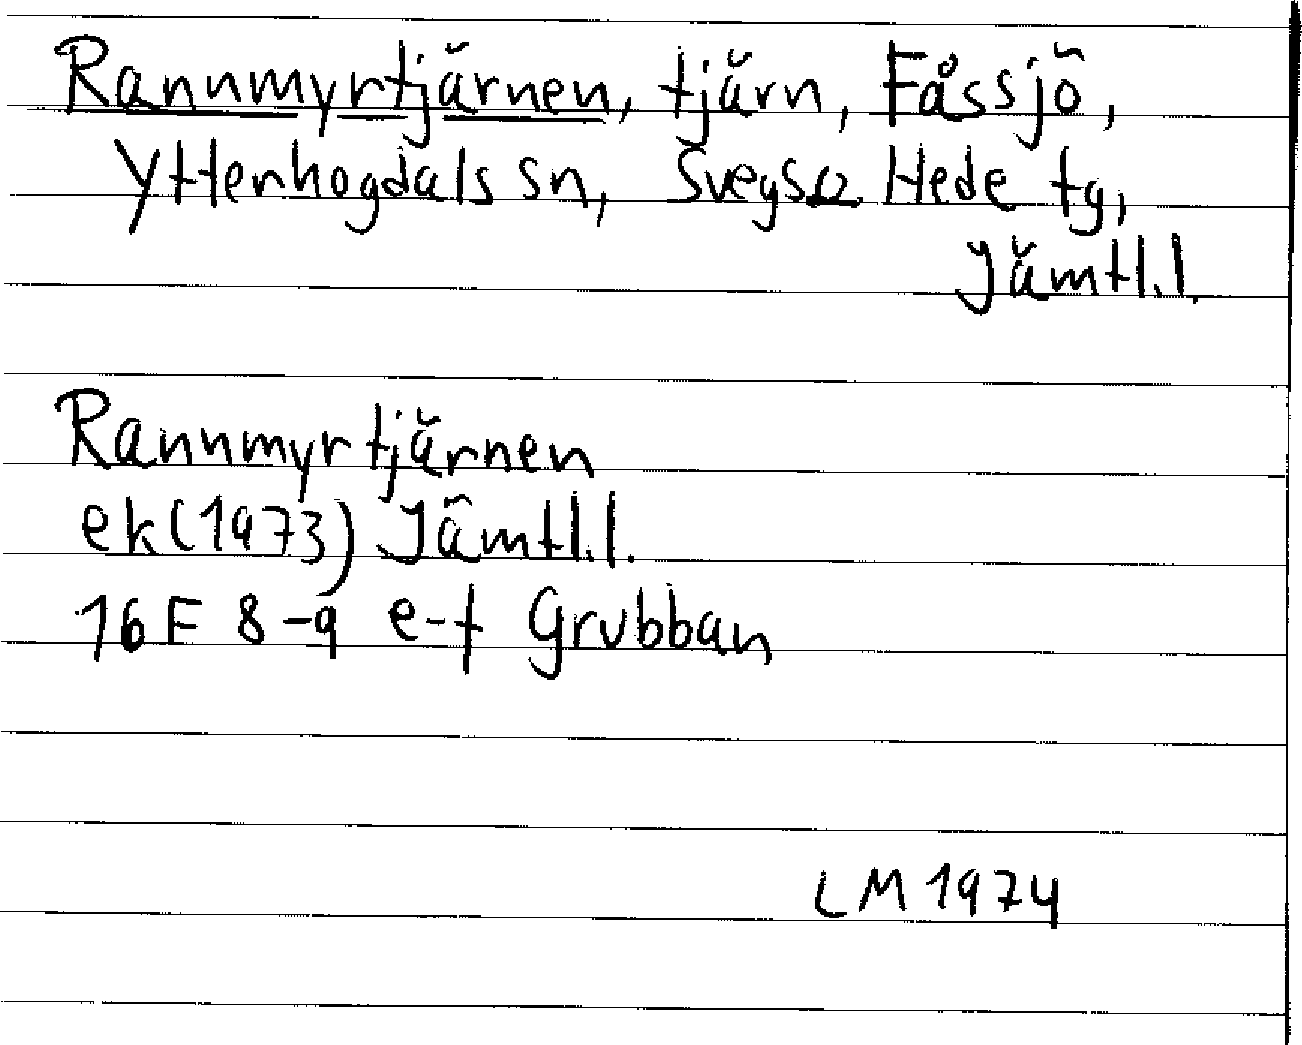 Rannmyrtjärnen, tjärn, Fåssjö,
Ytterhogdals sn, Svegs o Hede tg,
Jämtl.l.
Rannmyrtjärnen
ek (1973) Jämtl.l.
16 F 8-9 e-f Grubban
LM 1974